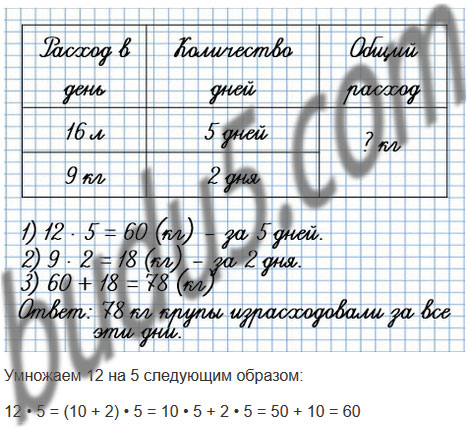 Расход в Количество Общий
день дней расход
16 л 5 дней
? кг
9 кг 2 дня
1) 12 · 5 = 60 (кг) – за 5 дней.
2) 9 · 2 = 18 (кг) – за 2 дня.
3) 60 + 18 = 78 (кг)
Ответ: 78 кг крупы израсходовали за все
эти дни.
budu5.com
Умножаем 12 на 5 следующим образом:
12 • 5 = (10 + 2) • 5 = 10 • 5 + 2 • 5 = 50 + 10 = 60